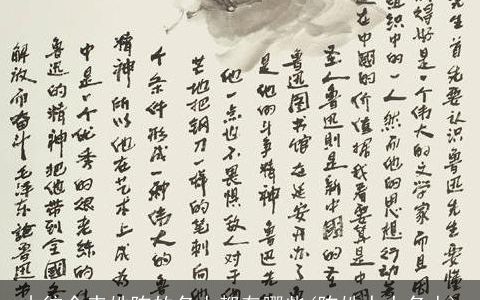 先生首先要认识鲁迅先生要懂
得他是一个伟大的文学家而且
组织中的一人然而他的思想行动著
在中国的价值据我看要算是中国
圣人鲁迅则是新中国的圣
鲁迅图书馆在延安开办了
是他的斗争精神鲁迅先
他一点也不畏惧敌人对于他
芒地把钢刀一样的笔刺向他
个条件形成一种伟大的鲁
精神所以他在艺术上成为
中是一个优秀的很老练的
鲁迅的精神把他带到全国
解放而奋斗 毛泽东论鲁迅